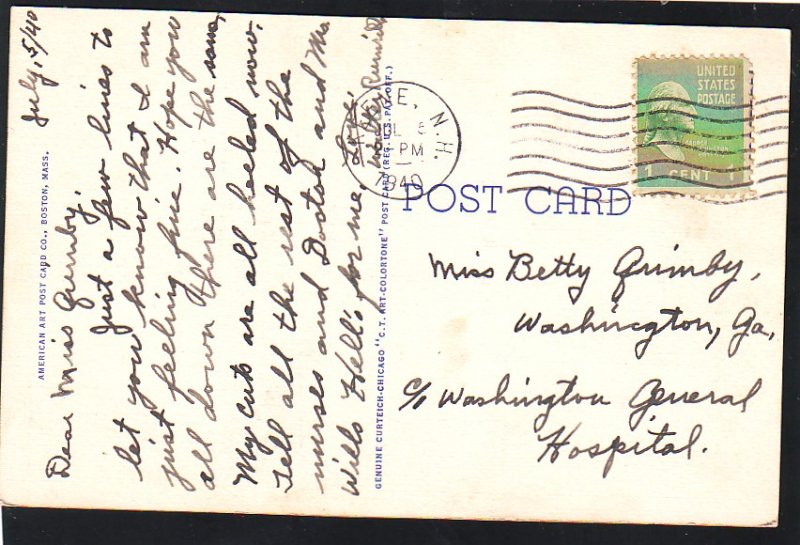 July, 5/40
Dear Miss Grimby,
Just a few lines to
let you know that I am
just feeling fine. Hope you
all down there are the same,
My cuts are all heeled now.
Tell all the rest of the
nurses and Doctoh and Ms
Wills Hello for me,
Love,
AMERICAN ART POST CARD CO., BOSTON, MASS.
GENUINE CURTEICH-CHICAGO "C.T. ART-COLORTONE" POST CARD (REG. U.S. PAT. OFF.)
KEENE, N.H.
JUL 6
PM
1940
UNITED
STATES
POSTAGE
1 CENT 1
POST CARD
Miss Betty Grimby,
Washington, Ga,
c/o Washington General
Hospital.